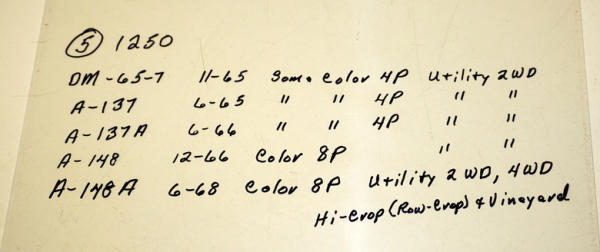 ⑤ 1250
DM-65-7 11-65 Some Color 4P Utility 2WD
A-137 6-65 " " 4P " "
A-137A 6-66 " " 4P " "
A-148 12-66 Color 8P " "
A-148A 6-68 Color 8P Utility 2WD, 4WD
Hi-Crop (Row-Crop) & Vineyard